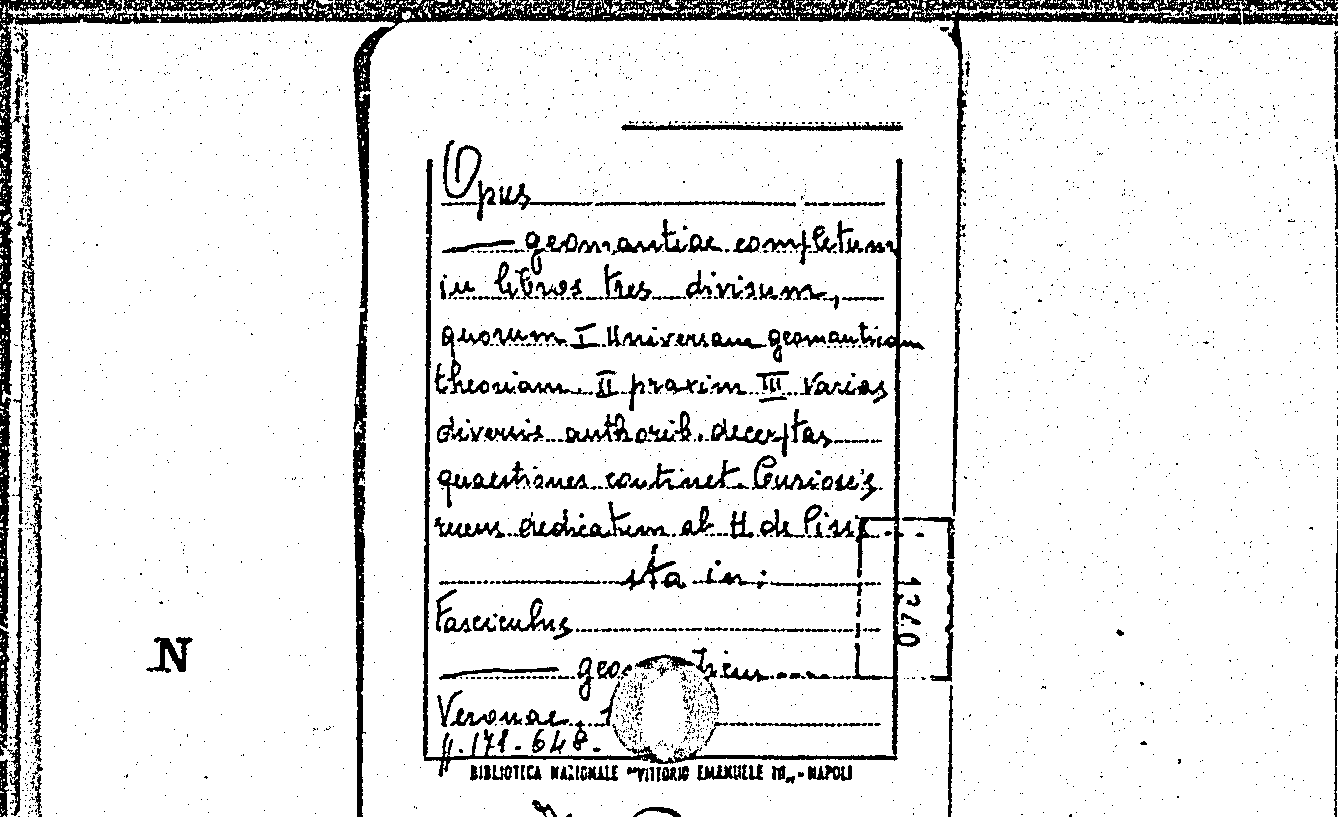 Opus
geomantiae completum
in libros tres divisum,
quorum I Universam geomanticam
theoriam. II praxim III varias
diversis authorib. decerptas
quaestiones continet. Curiosis
rerum dedicatum ab H. de Pisis
sta in:
Fasciculus
Veronae.
N
pp. 171-648.
BIBLIOTECA NAZIONALE "VITTORIO EMANUELE III" - NAPOLI